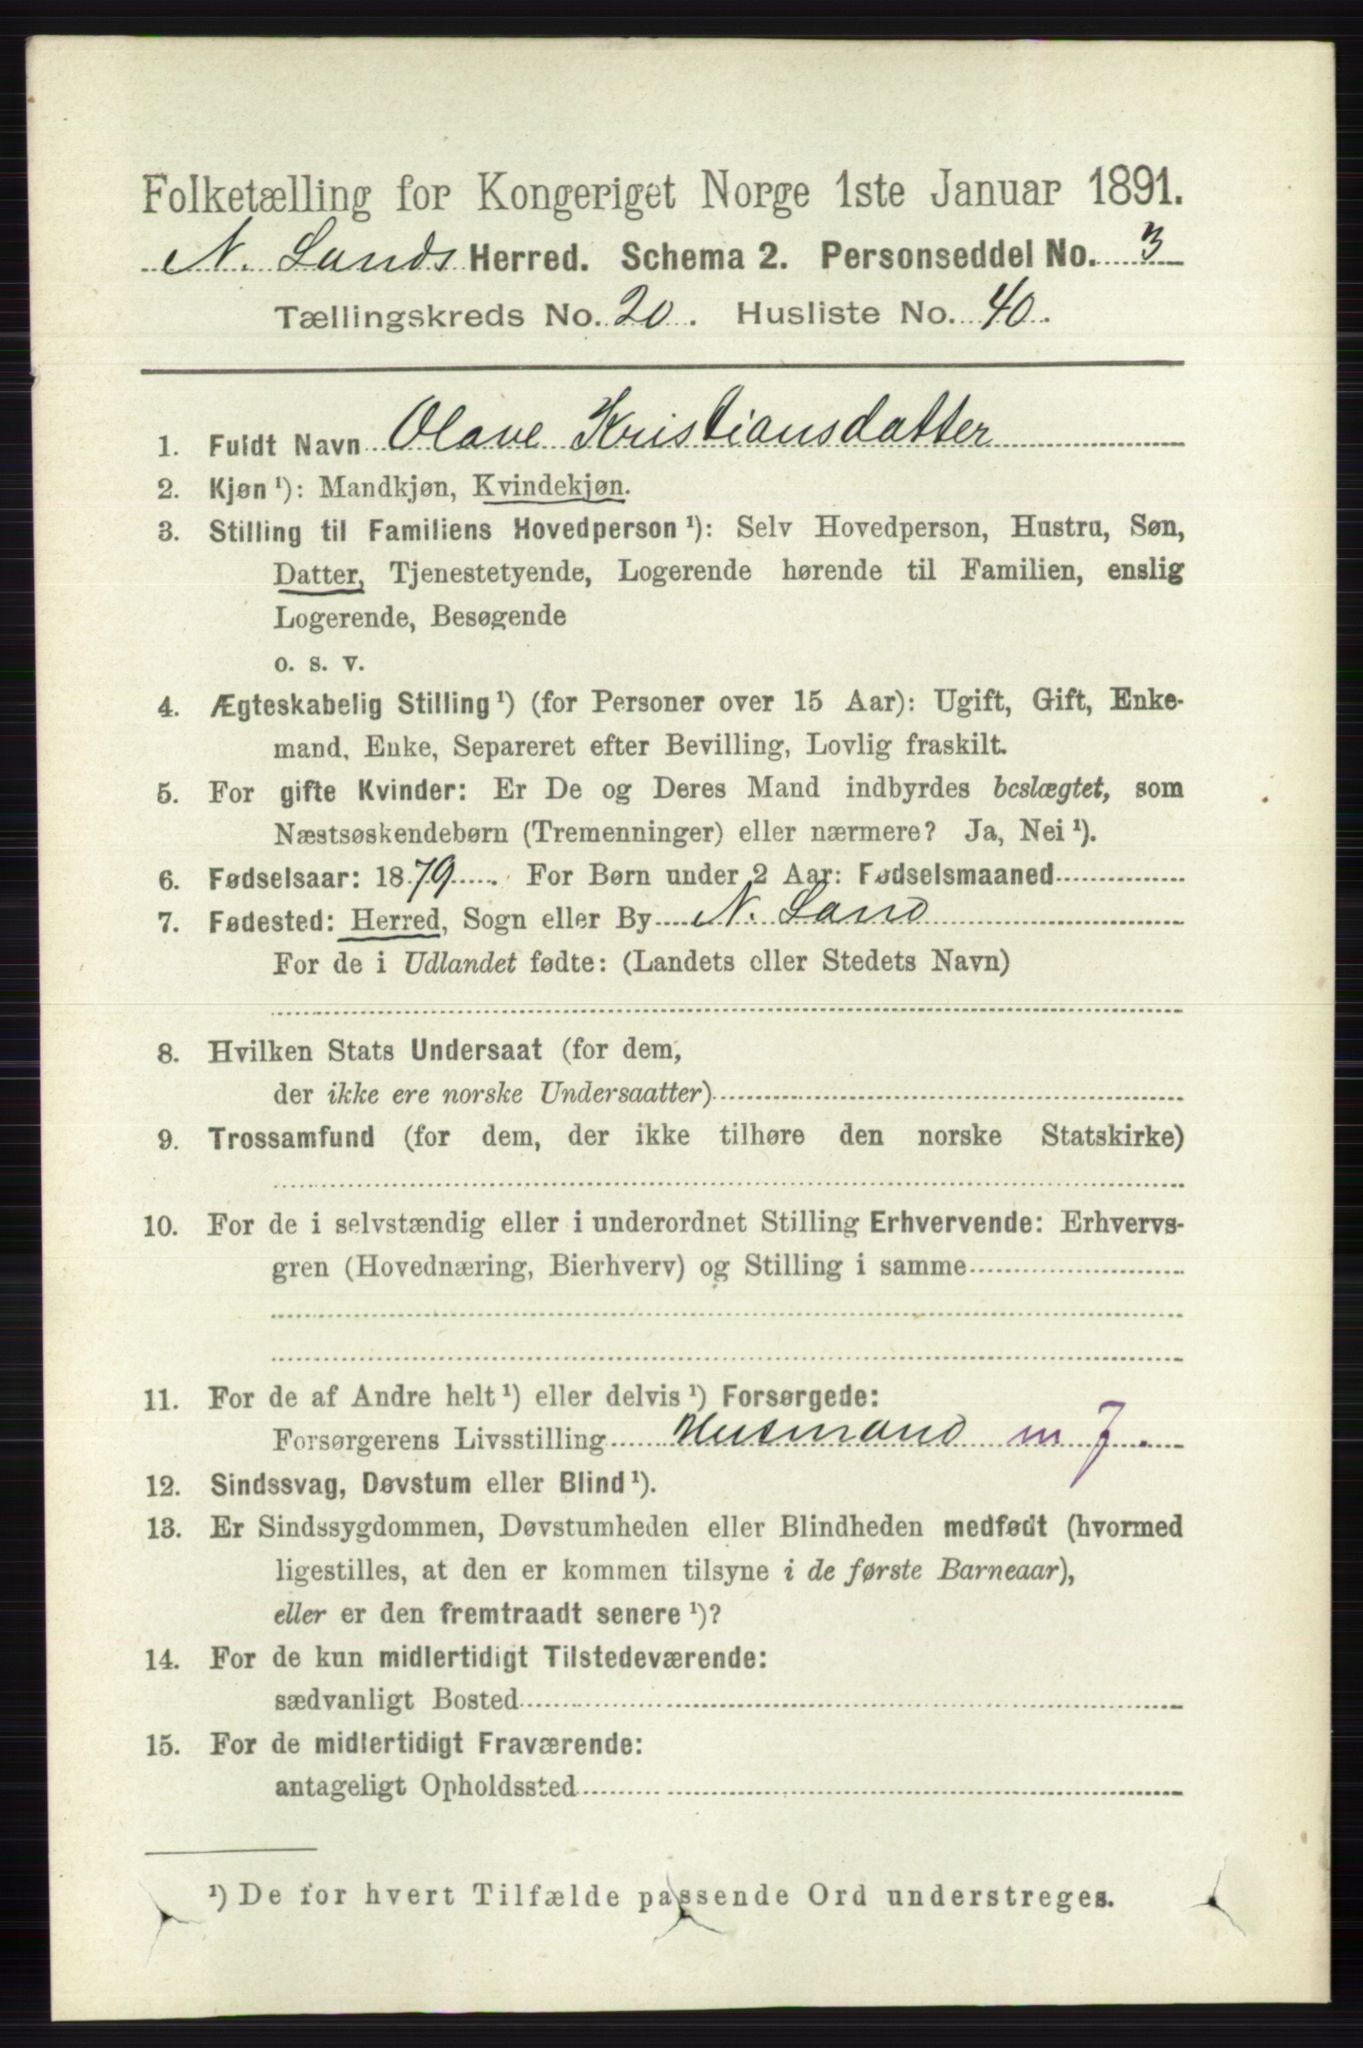 Folketælling for Kongeriget Norge 1ste Januar 1891.
N. Lands Herred. Schema 2. Personseddel No. 3
Tællingskreds No. 20. Husliste No. 40.
1. Fuldt Navn Olave Kristiansdatter
2. Kjøn ¹): Mandkjøn, Kvindekjøn.
3. Stilling til Familiens Hovedperson ¹): Selv Hovedperson, Hustru, Søn,
Datter, Tjenestetyende, Logerende hørende til Familien, enslig
Logerende, Besøgende
o. s. v.
4. Ægteskabelig Stilling ¹) (for Personer over 15 Aar): Ugift, Gift, Enke-
mand, Enke, Separeret efter Bevilling, Lovlig fraskilt.
5. For gifte Kvinder: Er De og Deres Mand indbyrdes beslægtet, som
Næstsøskendebørn (Tremenninger) eller nærmere? Ja, Nei ¹).
6. Fødselsaar: 1879. For Børn under 2 Aar: Fødselsmaaned
7. Fødested: Herred, Sogn eller By N. Land
For de i Udlandet fødte: (Landets eller Stedets Navn)
8. Hvilken Stats Undersaat (for dem,
der ikke ere norske Undersaatter)
9. Trossamfund (for dem, der ikke tilhøre den norske Statskirke)
10. For de i selvstændig eller i underordnet Stilling Erhvervende: Erhvervs-
gren (Hovednæring, Bierhverv) og Stilling i samme
11. For de af Andre helt ¹) eller delvis ¹) Forsørgede:
Forsørgerens Livsstilling Husmand m J.
12. Sindssvag, Døvstum eller Blind ¹).
13. Er Sindssygdommen, Døvstumheden eller Blindheden medfødt (hvormed
ligestilles, at den er kommen tilsyne i de første Barneaar),
eller er den fremtraadt senere ¹)?
14. For de kun midlertidigt Tilstedeværende:
sædvanligt Bosted
15. For de midlertidigt Fraværende:
antageligt Opholdssted
¹) De for hvert Tilfælde passende Ord understreges.